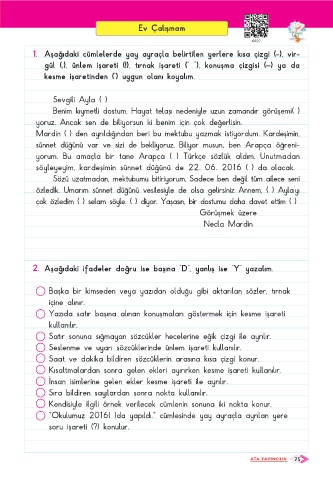 Ev Çalışmam
1. Aşağıdaki cümlelerde yay ayraçla belirtilen yerlere kısa çizgi (-), vir-
gül (,), ünlem işareti (!), tırnak işareti (" "), konuşma çizgisi (—) ya da
kesme işaretinden (') uygun olanı koyalım.
Sevgili Ayla ( )
Benim kıymetli dostum. Hayat telaşı nedeniyle uzun zamandır görüşemi( )
yoruz. Ancak sen de biliyorsun ki benim için çok değerlisin.
Mardin ( ) den ayrıldığından beri bu mektubu yazmak istiyordum. Kardeşimin,
sünnet düğünü var ve sizi de bekliyoruz. Biliyor musun, ben Arapça öğreni-
yorum. Bu amaçla bir tane Arapça ( ) Türkçe sözlük aldım. Unutmadan
söyleyeyim, kardeşimin sünnet düğünü de 22. 06. 2016 ( ) da olacak.
Sözü uzatmadan, mektubumu bitiriyorum. Sadece ben değil tüm ailece seni
özledik. Umarım sünnet düğünü vesilesiyle de olsa gelirsiniz. Annem, ( ) Ayla'yı
çok özledim ( ) selam söyle. ( ) diyor. Yaşasın, bir dostumu daha davet ettim ( )
Görüşmek üzere
Necla Mardin
2. Aşağıdaki ifadeler doğru ise başına "D", yanlış ise "Y" yazalım.
Başka bir kimseden veya yazıdan olduğu gibi aktarılan sözler, tırnak
içine alınır.
Yazıda satır başına alınan konuşmaları göstermek için kesme işareti
kullanılır.
Satır sonuna sığmayan sözcükler hecelerine eğik çizgi ile ayrılır.
Seslenme ve uyarı sözcüklerinde ünlem işareti kullanılır.
Saat ve dakika bildiren sözcüklerin arasına kısa çizgi konur.
Kısaltmalardan sonra gelen ekleri ayırırken kesme işareti kullanılır.
İnsan isimlerine gelen ekler kesme işareti ile ayrılır.
Sıra bildiren sayılardan sonra nokta kullanılır.
Kendisiyle ilgili örnek verilecek cümlenin sonuna iki nokta konur.
"Okulumuz 2016( )da yapıldı." cümlesinde yay ayraçla ayrılan yere
soru işareti (?) konulur.
ATA YAYINCILIK 75